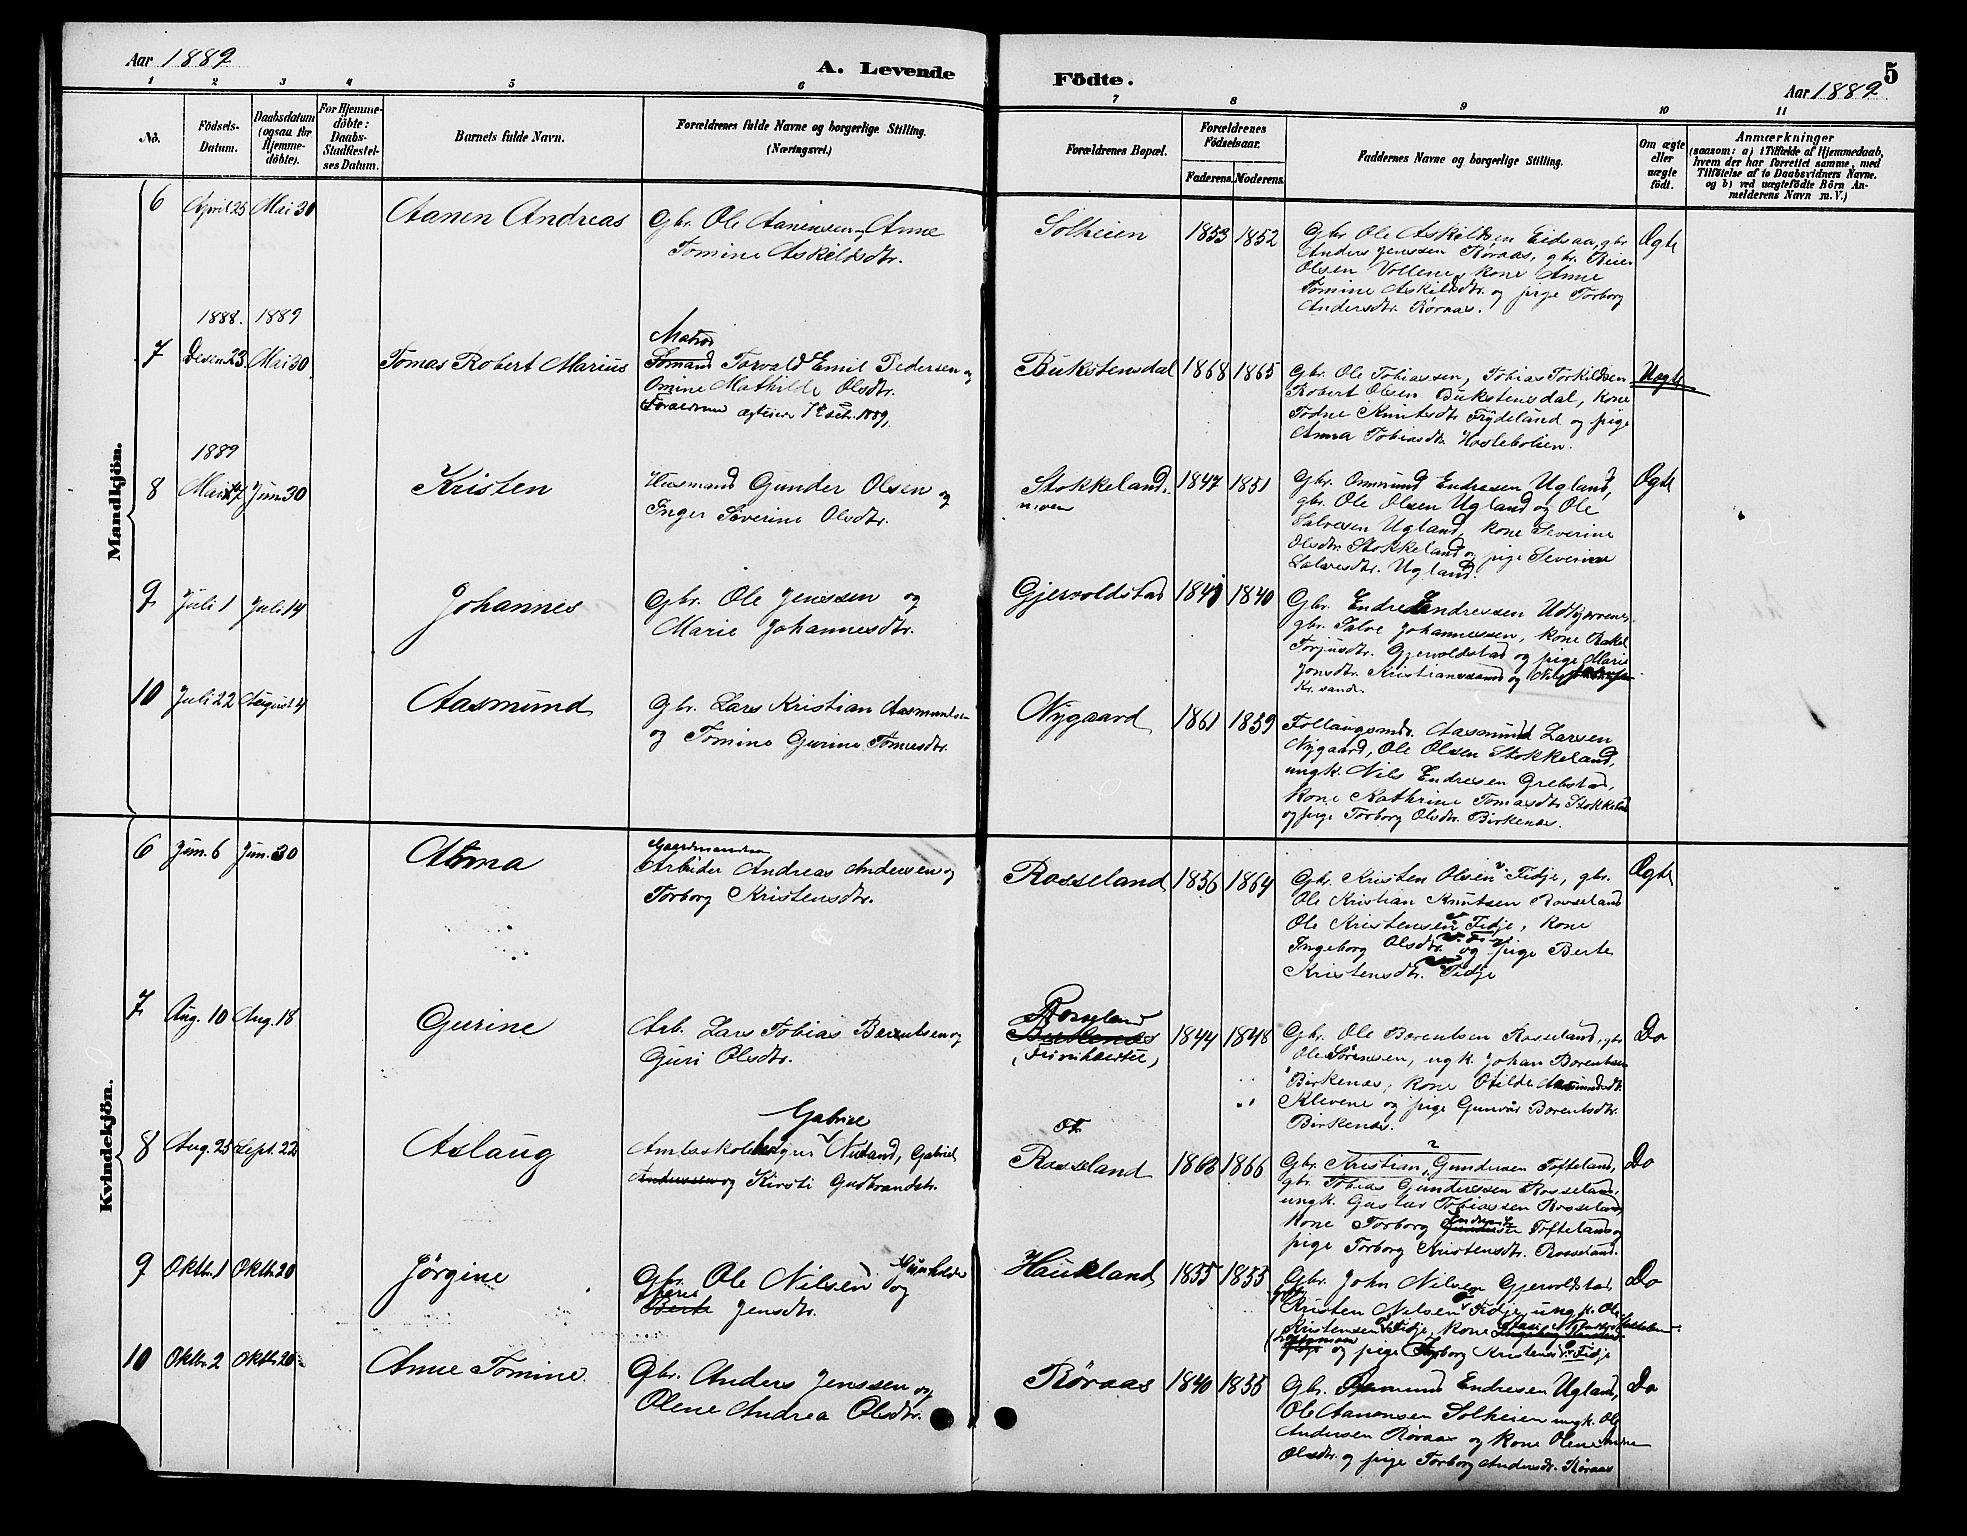 Aar 1889
A. Levende
Födte.
5
Aar 1889
1 2 3 4 5 6 7 8 9 10 11
No.
Födsels-
Datum.
Daabsdatum
(ogsaa for
Hjemme-
döbte).
For Hjemme-
döbte:
Daabs-
Stadfæstel-
ses Datum.
Barnets fulde Navn.
Forældrenes fulde Navne og borgerlige Stilling.
(Næringsvei.)
Forældrenes Bopæl.
Forældrenes
Födselsaar.
Faderens. Moderens.
Faddernes Navne og borgerlige Stilling.
Om ægte
eller
uægte
födt.
Anmærkninger
(saasom: a) i Tilfælde af Hjemmedaab,
hvem der har forrettet samme, med
Tilföielse af to Daabsvidners Navne.
og b) ved uægtefödte Börn An-
melderens Navn m. V.)
Mandkjön.
6 April 25 Mai 30 Aanen Andreas
Gbr. Ole Aanensen, Anne
Tomine Askildsdtr.
Solheien 1853 1852
Gbr. Ole Askildsen Eidsaa, gbr.
Anders Jenssen Røraas, gbr. Reier
Olsen Vollene, kone Anne
Tomine Askildsdtr. og pige Torborg
Andersdtr. Røraas.
Ægte
1888. 1889
7 Desem 23 Mai 30 Tomas Robert Marius
Matros
Torvald Emil Pedersen og
Omine Mathilde Olsdtr.
Forældrene ægteviet 1889,
Bukstensdal 1868 1865
Gbr. Ole Tobiassen, Tobias Torkildsen
Robert Olsen Bukstensdal, kone
Todne Knutsdtr. Frydeland og pige
Anna Tobiasdtr.
Uægte
1889
8 Mai 17 Juni 30 Kristen
Husmand Gunder Olsen og
Inger Severine Olsdtr.
Stokkeland
1847 1851
Gbr. Ommund Endresen Ugland,
gbr. Ole Olsen Ugland og Ole
Salvesen Ugland, kone Severine
Olsdtr. Stokkeland og pige Severine
Salvesdtr. Ugland.
Ægte
9 Juli 1 Juli 14 Johannes
Gbr. Ole Jenssen og
Marie Johannesdtr.
Gjervoldstad 1840
Gbr. Endre Endressen
gbr. Salve Johannessen, kone Rakel
Torjusdtr. Gjervoldstad og pige Marie
Jonsdtr. Kristianssand og Nils
Kr.sand.
10 Juli 22 August 4 Aasmund
Gbr. Lars Kristian Aasmundsen
og Tomine Gurine Tomasdtr.
Nygaard 1861 1859
Follaugsmd. Aasmund Larsen
Nygaard, Ole Olsen Stokkeland,
ungk. Nils Endresen Grebstad,
kone Kathrine Tomasdtr. Stokkeland
og pige Torborg Olsdtr. Birkenæs.
Kvindekjön.
6 Jun. 6 Jun. 30
Gaardmandssøn
Arbeider Andreas Andersen og
Torborg Kristensdtr.
Rosseland 1836 1864
Gbr. Kristen Olsen Tidje, gbr.
Ole Kristian Knutsen Rosseland
Ole Kristensen Tidje, kone
Ingeborg Olsdtr. og pige Berte
Kristensdtr. Tidje
Ægte
7 Aug. 10 Aug. 18 Gurine
Arb. Lars Tobias Berentsen og
Guri Olsdtr.
Rosseland
Birkenæs
1844 1848
Gbr. Ole Berentsen Rosseland, gbr.
Ole Sørensen, ugk. Johan Berentsen
Birkenæs, kone Otilde Aasmundsdtr.
Klevene og pige Gunvor Berentsdtr.
Birkenæs.
Do
8 Aug. 25 Sept. 22 Aslaug
Gabriel
Amtsskolebestyrer Nuland, Gabriel
Anderssen og Kirsti Gudbrandsdtr.
Rosseland 1863 1866
Gbr. Kristian Gundersen Tofteland,
gbr. Tobias Gunderssen Rosseland,
ungk. Gustav Tobiassen Rosseland
kone Torborg Tofteland og
pige Torborg Kristensdtr. Rosseland.
Do
9 Oktbr. 1 Oktb. 20 Jørgine
Gbr. Ole Nilsen og
Berte Jensdtr.
Haukeland 1855 1855
Gbr. John Nilsen Gjervoldstad,
Kristen Nilsen Tidje, ungk. Ole
Kristensen Tidje, kone
og pige Kristensdtr. Tidje
Do
10 Oktbr. 2 Oktb. 20 Anne Tomine
Gbr. Anders Jenssen og
Olene Andrea Olsdtr.
Røraas 1840 1855
Gbr. Aamund Endresen Ugland,
Ole Aanensen Solheien ungk. Ole
Andersen Røraas og kone Olene
Olsdtr. og pige Torborg Andersdtr. Røraas
Do